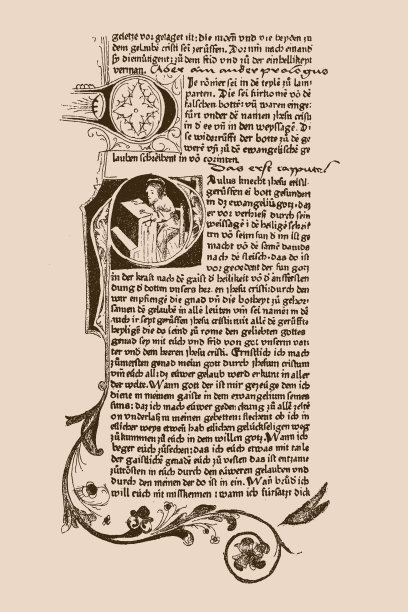 gesetze vor gesaget ist: die moen und vie beyden zu
dem gelaube cristi sei zerüffen. Dor um nach einand
hy diemütigent: zu dem frid und zu der einhellikeyt
verman. Aber ain ander prologus
Je römer sei in de teyle zu lam
parten. Die sei fürkome vo de
falschen botte: vn waren einge
fürt under de namen jhesu cristi
in d' ee vn in den weyssage. Di
se widerrüfft der botte zu de ge
were vn zu de ewangelische ge
lauben schreibent in vo corinten.
Das erst cappitel
Paulus knecht jhesu cristi
gerüffen ei bott gesundert
in dz ewangeliū gotz: daz
er vor verhieß durch sein
weissage i de heilige schrift
ten vo seim sun d' im ist ge
macht vo de same dauids
nach de fleisch. das do ist
vor geordent der sun gotz
in der kraft nach de gaist d' heilikeit vo d' aufersten
dung d' dotten unsers herren jhesu cristi: durch den
war enpfinge die gnad vn die botheyt zu gehor
samen de gelaube in alle leüten um sei namē: in de
auch ir seyt gerüffen jhesu cristi: mit alle de gerüffte
heylige die do seind zu rome den geliebten gottes
genad sey mit euch und frid von got unserm vat
ter und dem herren jhesu cristi. Ernstlich ich mach
zu mersten genad meim gott durch jhesum cristum
um eüch all: dz eüwer gelaub werd erkunt in aller
der welte. Wann gott der ist mir gezeüge dem ich
diene in meinem gaiste in dem ewangelium seines
suns: daz ich mach eüwer gedenckung zu alle zeite
on underlaß in meinen gebetten: flechent ob ich in
etlicher weys etwen hab etlichen gelückseligen weg
zu kummen zu eüch in dem willen gotz. Wann ich
beger eüch zu sechen: das ich eüch etwas mit taile
der gaistliche genade eüch zu vesten das ist entzame
zu trösten in eüch durch den eüweren gelauben und
durch den meinen der do ist in ein. Wan brüd' ich
will eüch nit misskennen: wann ich fürsatzt dick